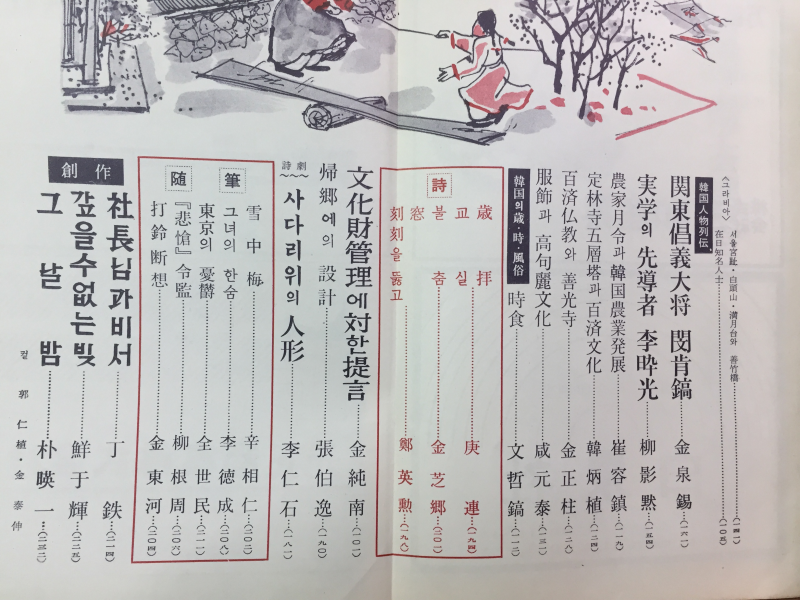 〈그라비아〉
서울宮趾・白頭山・満月台와 善竹橋……(一四一)
在日知名人士……(一〇五)
韓国人物列伝
関東倡義大将 閔肯鎬……金泉錫…(一六一)
実学의 先導者 李晬光……柳影黙…(一五四)
農家月令과 韓国農業発展……崔容鎮…(一一九)
定林寺五層塔과 百済文化……韓炳植…(一二四)
百済仏教와 善光寺……金正柱…(一二八)
服飾과 高句麗文化……咸元泰…(一三一)
韓国의 歳・時・風俗
時食……文哲鎬…(一一二)
詩
歳拝……庚連…(一九四)
교실
불춤……金芝郷…(二〇二)
窓
刻刻을 뚫고……鄭英勲…(一九八)
文化財管理에 対한 提言……金純南…(一〇一)
帰郷에의 設計……張伯逸…(一九〇)
詩劇
사다리위의 人形……李仁石…(一八一)
随筆
雪中梅……辛相仁…(二〇二)
그녀의 한숨……李徳成…(二〇八)
東京의 憂欝……全世民…(二一一)
『悲愴』令監……柳根周…(二〇六)
打鈴断想……金東河…(二〇四)
創作
社長님과 비서……丁鉄…(二一四)
갚을수없는빚……鮮于輝…(二二五)
그날밤……朴暎一…(二三二)
컽 郭仁植・金泰伸